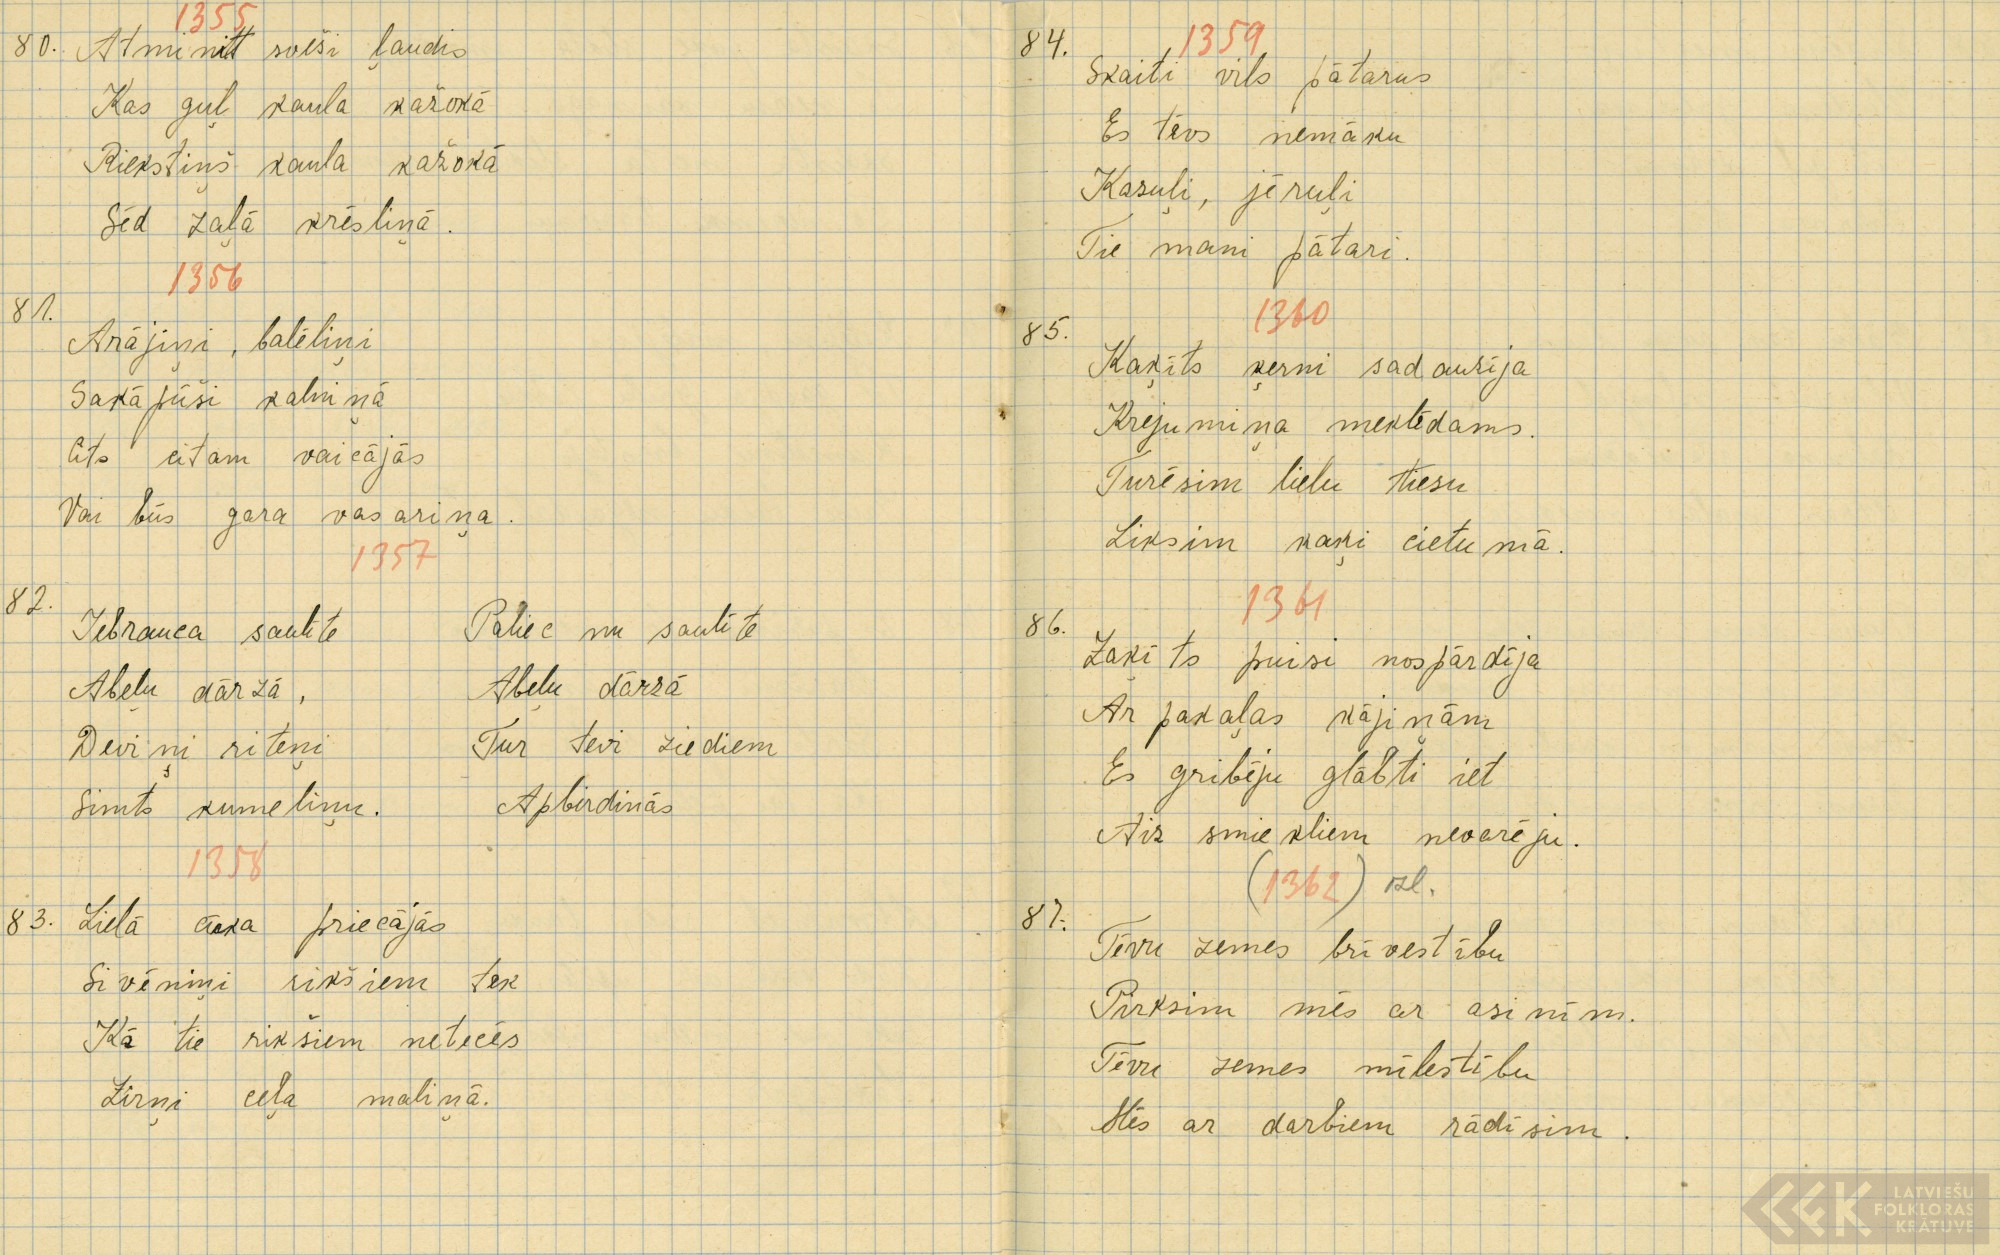 1355
80. Atminitt sveši ļaudis
Kas guļ kaula kažokā
Riekstiņš kaula kažokā
Sēd zaļā krēsliņā.
1356
81.
Arājiņi, balēliņi
Sakāpūši kalniņā
Cits citam vaicājās
Vai būs gara vasariņa.
1357
82.
Iebrauca saulīte
Abeļu dārzā,
Deviņi riteņi
Simts kumeliņu.
Paliec nu saulīte
Abeļu dārzā
Tur tevi ziediem
Apbirdinās
1358
83. Lielā cūka priecājās
Sivēniņi rikšiem tek
Kā tie rikšiem netecēs
Zirņi ceļa maliņā.
1359
84.
Skaiti vils pātarus
Es tēvs nemāku
Kazuļi, jēruļi
Tie mani pātari.
1360
85.
Kaķīts ķerni sadauzīja
Krejumiņa meklēdams.
Turēsim lielu tiesu
Liksim kaķi cietumā.
1361
86.
Zaķīts puisi nospārdīja
Ar pakaļas kājiņām
Es gribēju glābti iet
Aiz smiekliem nevarēju.
(1362) lit.
87.
Tēvu zemes brīvestību
Pirksim mēs ar asinīm.
Tēvu zemes mīlestību
Mēs ar darbiem rādīsim.
LATVIEŠU
FOLKLORAS
KRĀTUVE